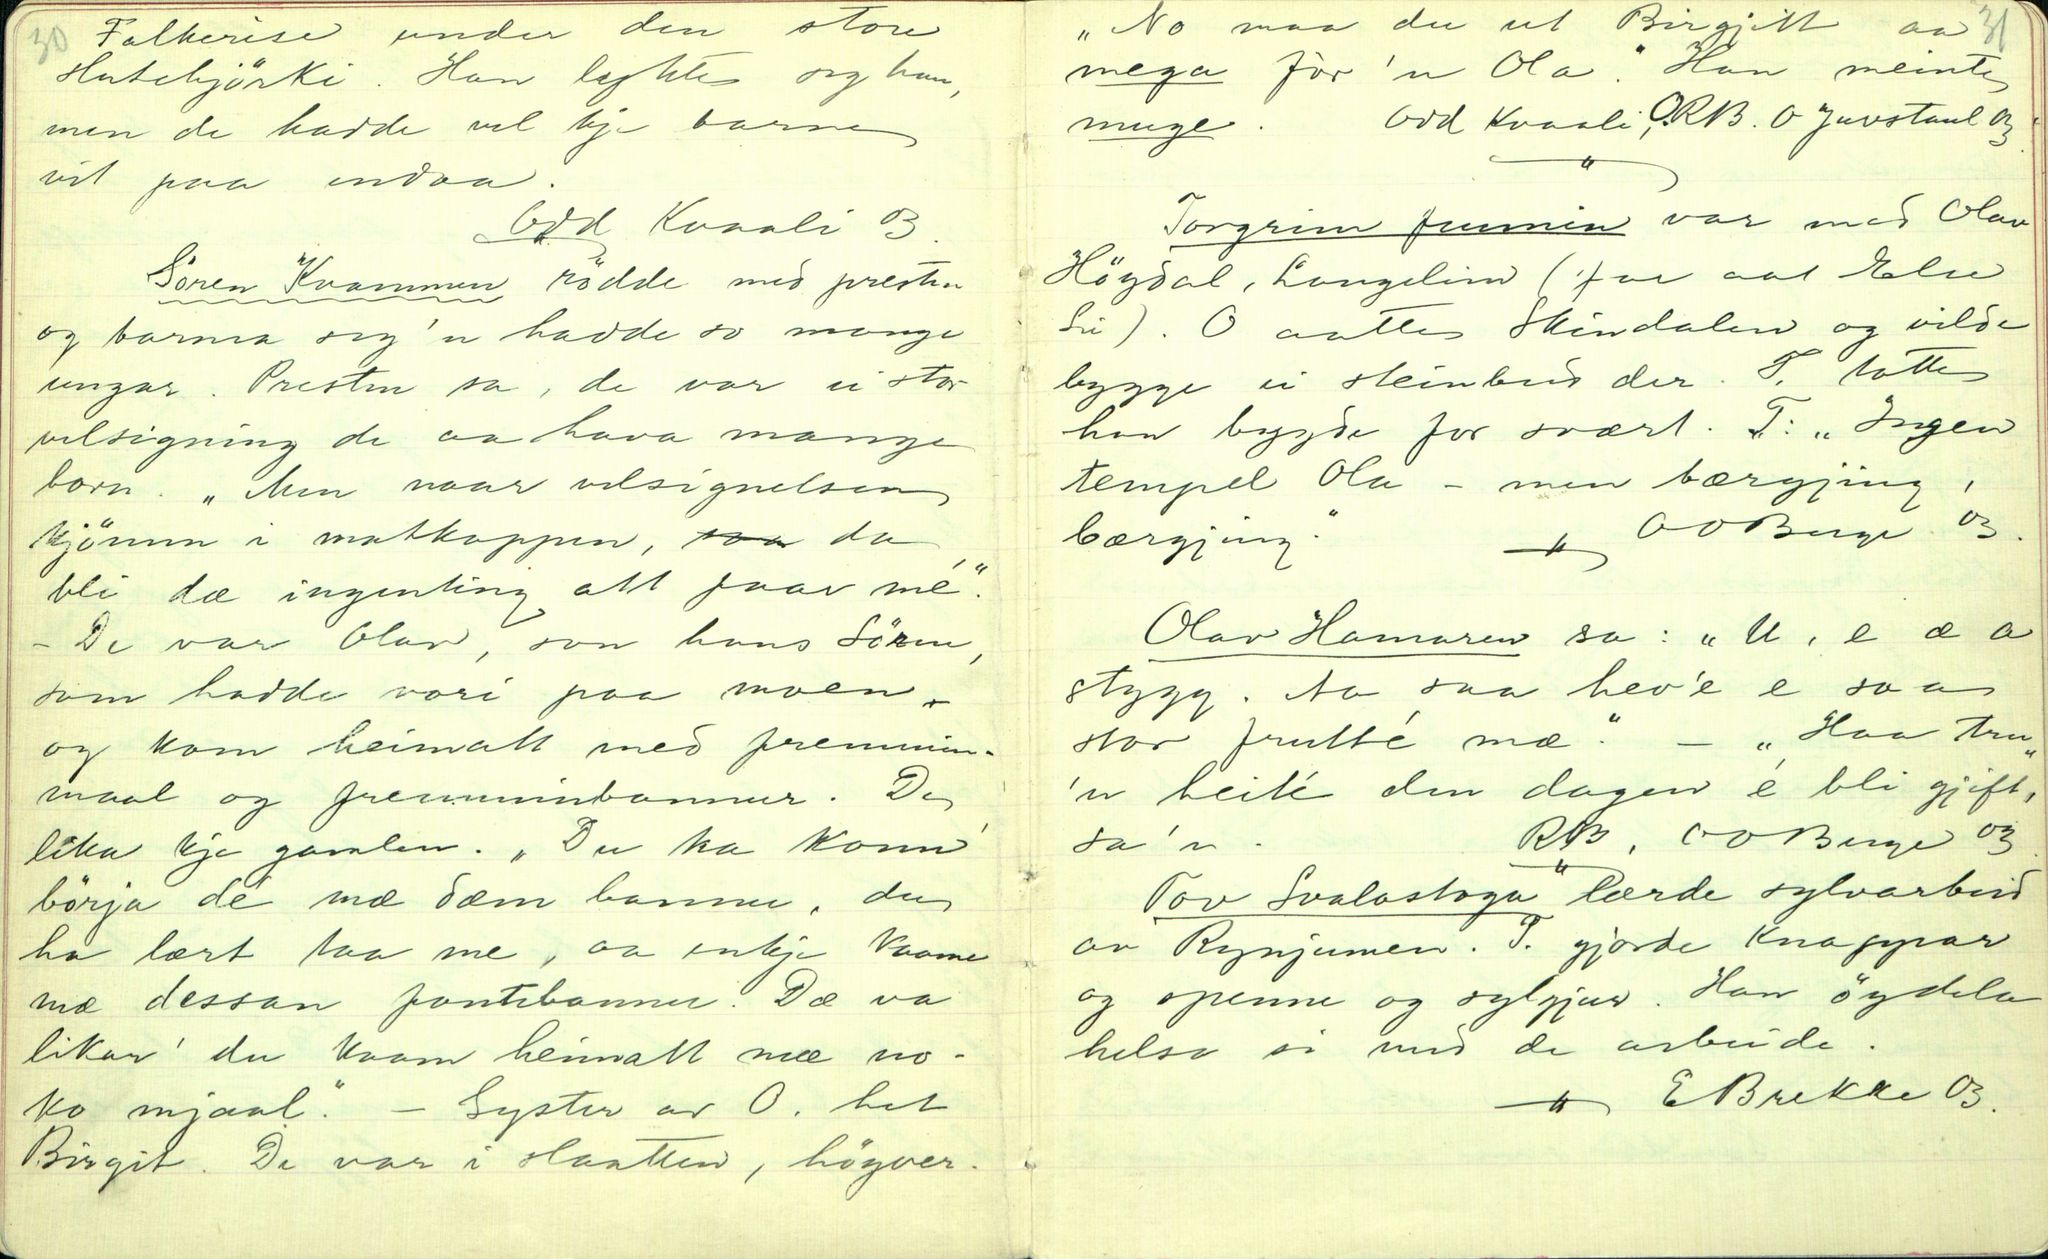 30
Falkerise under den store
Hutebjörki. Han lyktes seg han,
men de hadde vel kje barne
vit paa endaa.
Odd Kvaali OB.
Sören Kvammen rödde med presten
og barma seg 'n hadde so mange
ungar. Presten sa, de var ei stor
velsigning de aa hava mange
born. „Men naar velsignelsen
kjömm i matkoppen, saa da
bli dæ ingenting att paav mé".
- De var Olav, son hans Sören,
som hadde vori paa moen
og kom heimatt med fremmin-
maal og fremminbannur. De
lika kje gamlen. „Du ka komm'
börja dé mæ dæm bannu, du
ha lært taa me, aa inkje kaame
mæ dessan fantebannu. Dæ va
likar' du kaam heimatt mæ no-
ko mjaal." - Syster av O. het
Birgit. De var i slaatten, högver.
31
„No maa du ut Birgjitt aa
mega för 'n Ola." Han meinte
muge. Odd Kvaali, O.RB. O Juvstaul OB.
Torgrim fummin var med Olav
Höydal, Langelim (far aat Else
Li). O aatte Skindalen og vilde
bygge ei steinbud der. T. totte
han bygde for svært. T: „Ingen
tempel Ola - men bærgjing,
bærgjing." OO Berge OB.
Olav Hamaren sa: „U, e æ a
stygg. Aa saa hev'e e saa
stor frutté mæ." - „Haa tru
'n heité den dagen é bli gjift,"
sa'n. RB, OO Berge OB.
Tov Svalastoga lærde sylvarbeid
av Rynjumen. T. gjorde knappar
og spenne og sylgjur. Han öydela
helsa si med de arbeide.
E Brekke OB.